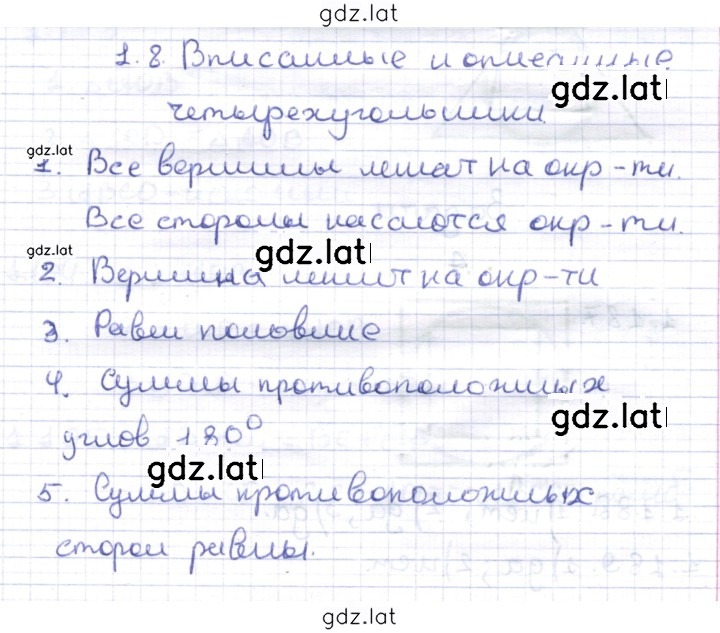 gdz.lat
1.8. Вписанные и описанные
gdz.lat
четырехугольники
gdz.lat
1. Все вершины лежат на окр-ти.
Все стороны касаются окр-ти.
gdz.lat
gdz.lat
2. Вершина лежит на окр-ти
3. Равен половине
4. Суммы противоположных
gdz.lat
углов 180°
gdz.lat
5. Суммы противоположных
сторон равны.
gdz.lat